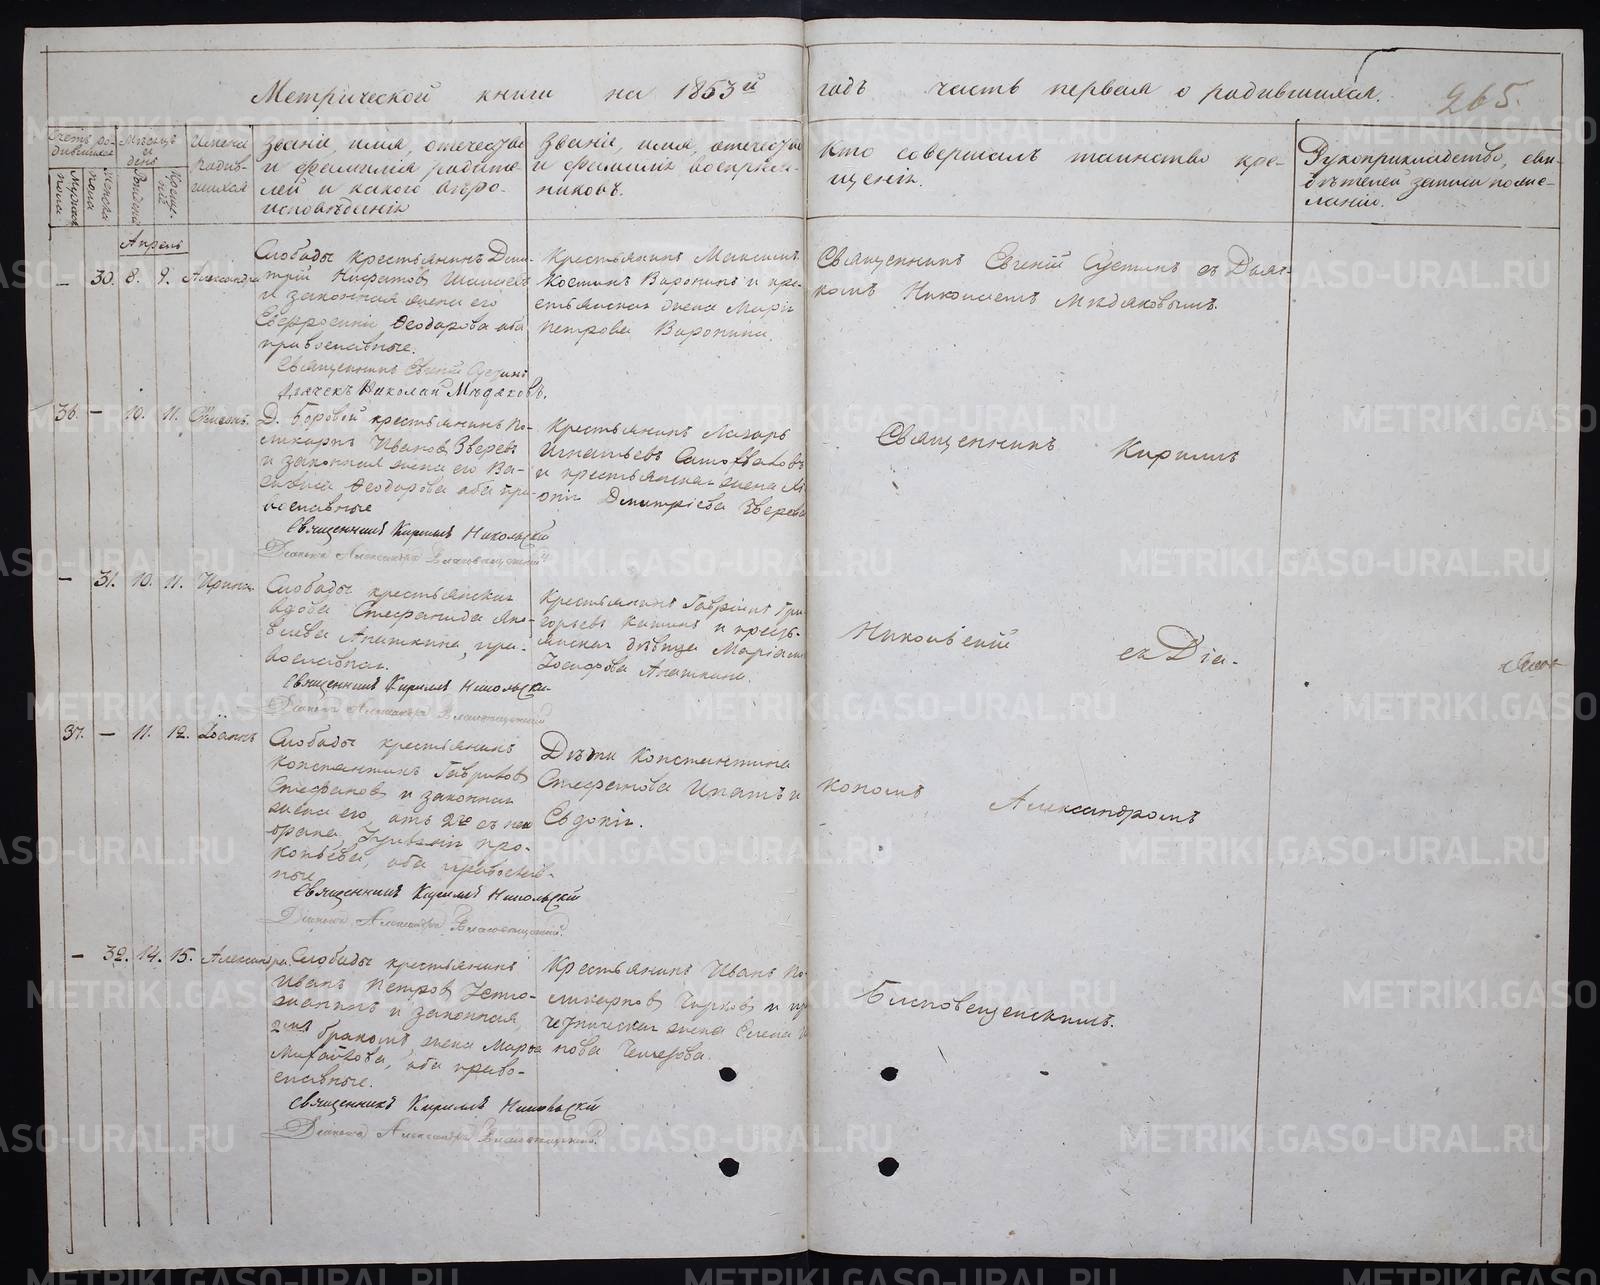 Метрической книги на 1853й годъ часть первая о родившихся.
265.
Счетъ ро-
дившихся
Мужеска
пола
Женска
пола
Мѣсяцъ
и
день
Рожденія
Креще-
нія
Имена
родив-
шихся
Званіе, имя, отечество
и фамилія родите-
лей и какого вѣро-
исповѣданія
Званіе, имя, отечество
и фамилія воспріем-
никовъ.
Кто совершалъ таинство кре-
щенія.
Рукоприкладство сви-
дѣтелей записи по жела-
нію.
Апрель
30. 8. 9. Александра
Слободы крестьянинъ Дми-
трій
и законная жена его
Евфросинія Ѳеодорова оба
православные.
Священникъ Евгеній
Дьячекъ Николай Мѣдяковъ.
Крестьянинъ Максимъ
Костинъ Воронинъ и кре-
стьянская жена Марія
Петрова Воронина.
Священникъ Евгеній съ Дьяч-
комъ Николаемъ Мѣдяковымъ.
36. — 10. 11. Симеонъ.
Д. Боровой крестьянинъ По-
ликарпъ Ивановъ Зверевъ
и законная жена его Ва-
силиса Ѳеодорова оба пра-
вославные
Священникъ Кириллъ Никольскій
Діаконъ Александръ Благовещенскій
Крестьянинъ Лазарь
Игнатьевъ
и крестьянская жена
Дмитріева Зверева
Священникъ Кириллъ
— 31. 10. 11. Ирина
Слободы крестьянская
вдова Стефанида Яко-
влева Апашкина, пра-
вославная.
Священникъ Кириллъ Никольскій
Діаконъ Александръ Благовещенскій
Крестьянинъ Гавріилъ Гри-
горьевъ и кресть-
янская дѣвица Марія
Іосифова Апашкина.
Никольскій съ Діа-
37. — 11. 12. Іоаннъ
Слободы крестьянинъ
Константинъ Гавриловъ
Стефановъ и законная
жена его, отъ 2го съ нею
брака, про-
копьева, оба православ-
ные
Священникъ Кириллъ Никольскій
Діаконъ Александръ Благовещенскій.
Дѣти Константина
Стефанова Ипатъ и
Евдокія.
кономъ Александромъ
— 32. 14. 15. Александра.
Слободы крестьянинъ
Иванъ Петровъ Устю-
жанинъ и законная,
2мъ бракомъ жена Марѳа
Михайлова, оба право-
славные.
Священникъ Кириллъ Никольскій
Діаконъ Александръ Благовещенскій
Крестьянинъ Иванъ По-
ликарповъ Чирковъ и
жена Елена
нова
Благовещенскимъ.
METRIKI.GASO-URAL.RU